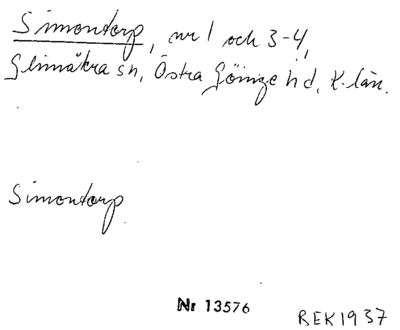 Simontorp, nr 1 och 3-4,
Glimåkra sn, Östra Göinge hd, K. län.
Simontorp
Nr 13576
BEK1937